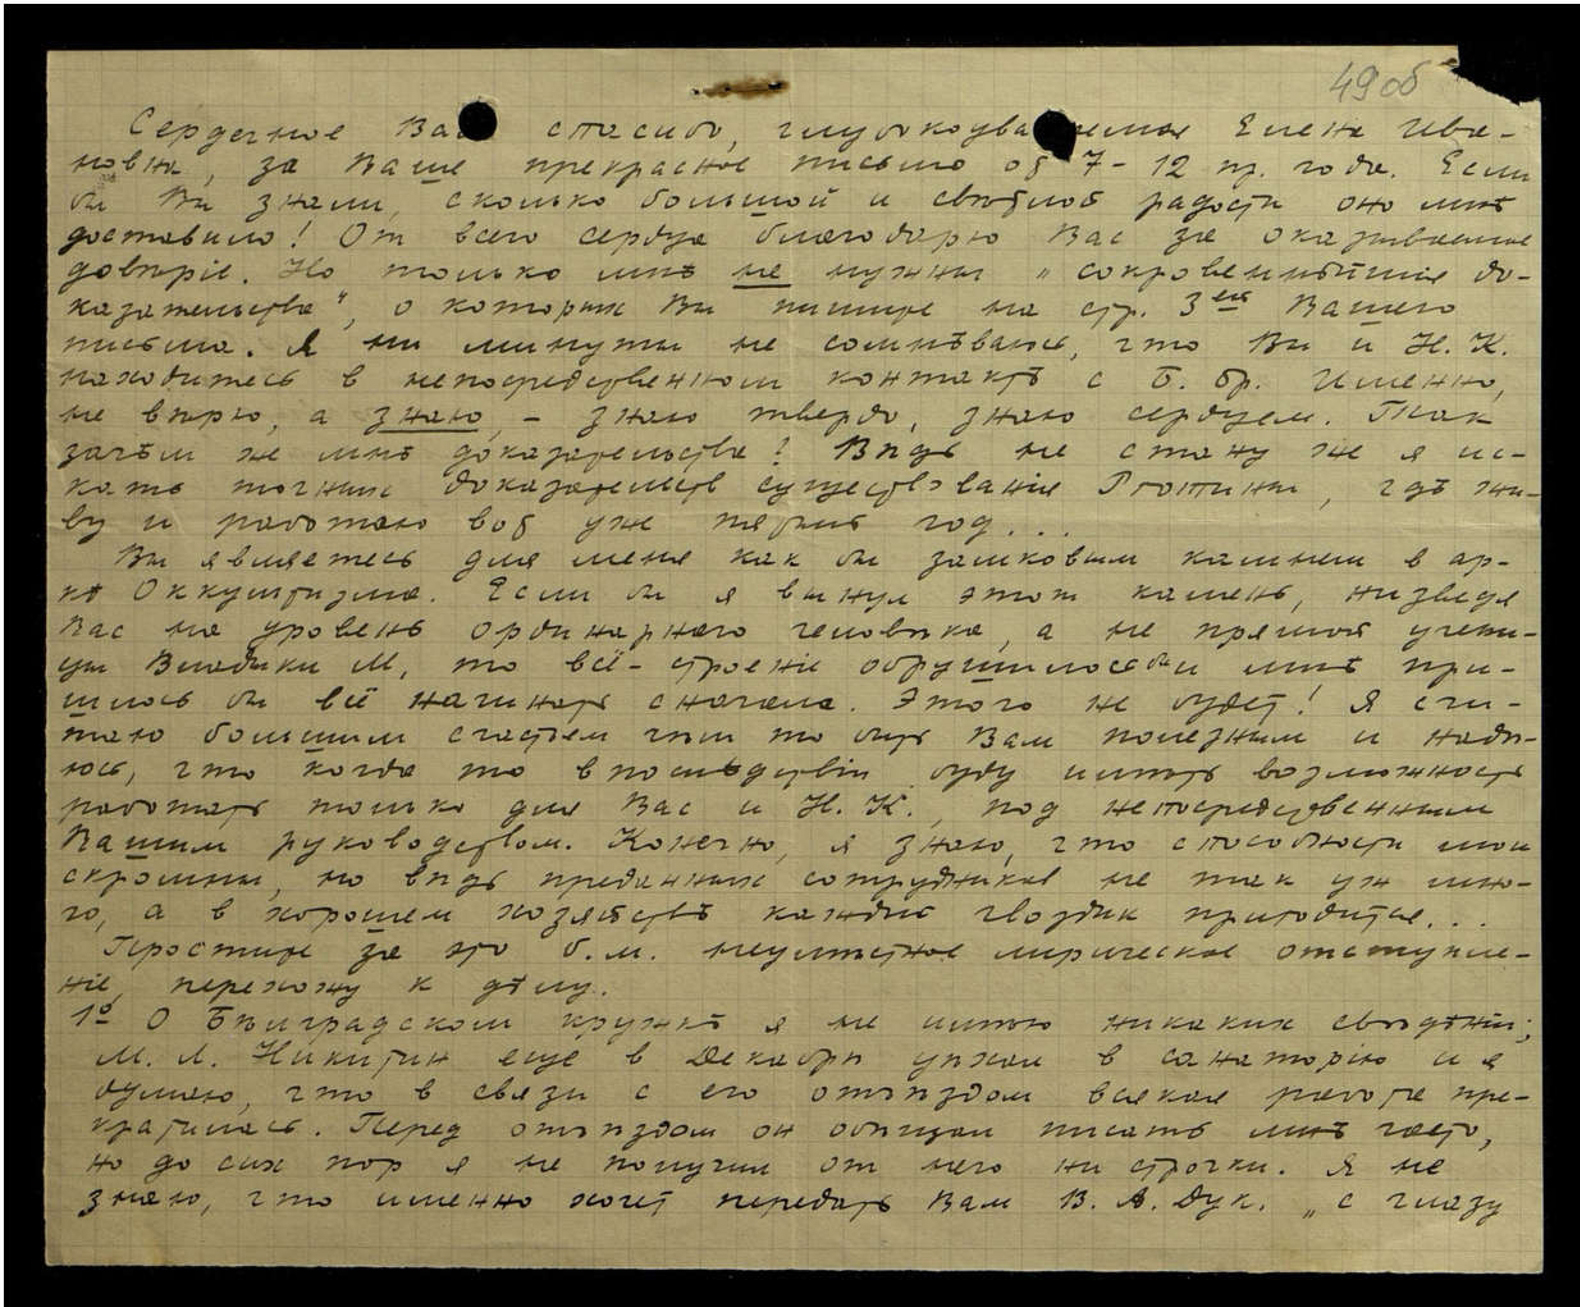 49об
Сердечное Вам спасибо, глубокоуважаемая Елена Ива-
новна, за Ваше прекрасное письмо от 7-12 пр. года. Если
бы Вы знали, сколько большой и свѣтлой радости оно мнѣ
доставило! От всего сердца благодарю Вас за оказываемое
довѣріе. Но только мнѣ не нужны „сокровеннѣйшие до-
казательства", о которых Вы пишите на стр. 3ей Вашего
письма. Я ни минуты не сомнѣваюсь, что Вы и Н. К.
находитесь в непосредственном контактѣ с Б. бр. Именно,
не вѣрю, а знаю, - знаю твердо, знаю сердцем. Так
зачѣм же мнѣ доказательства? Вѣдь не стану же я ис-
кать точных доказательств существованія , гдѣ жи-
ву и работаю вот уже год...
Вы являетесь для меня как бы замковым камнем в ар-
кѣ Оккультизма. Если бы я вынул этот камень, низведя
Вас на уровень ординарного человѣка, а не прямой учени-
цы Владыки М, то всё строеніе обрушилось бы и мнѣ при-
шлось бы всё начинать сначала. Этого не будет! Я счи-
таю большим счастьем чѣм то быть Вам полезным и надѣ-
юсь, что когда то впослѣдствіи буду имѣть возможность
работать только для Вас и Н. К., под непосредственным
Вашим руководством. Конечно, я знаю, что способности мои
скромны, но вѣдь преданных сотрудников не так уж мно-
го, а в хорошем хозяйствѣ каждый гвоздик пригодится...
Простите за это б. м. неумѣстное лирическое отступле-
ніе, перехожу к дѣлу.
1º О Бѣлградском кружкѣ я не имѣю никаких свѣдѣній;
М. Л. Никитин еще в Декабрѣ уѣхал в санаторію и я
думаю, что в связи с его отъѣздом всякая работа пре-
кратилась. Перед отъѣздом он обѣщал писать мнѣ часто,
но до сих пор я не получил от него ни строчки. Я не
знаю, что именно хочет передать Вам В. А. Дук. „с глазу